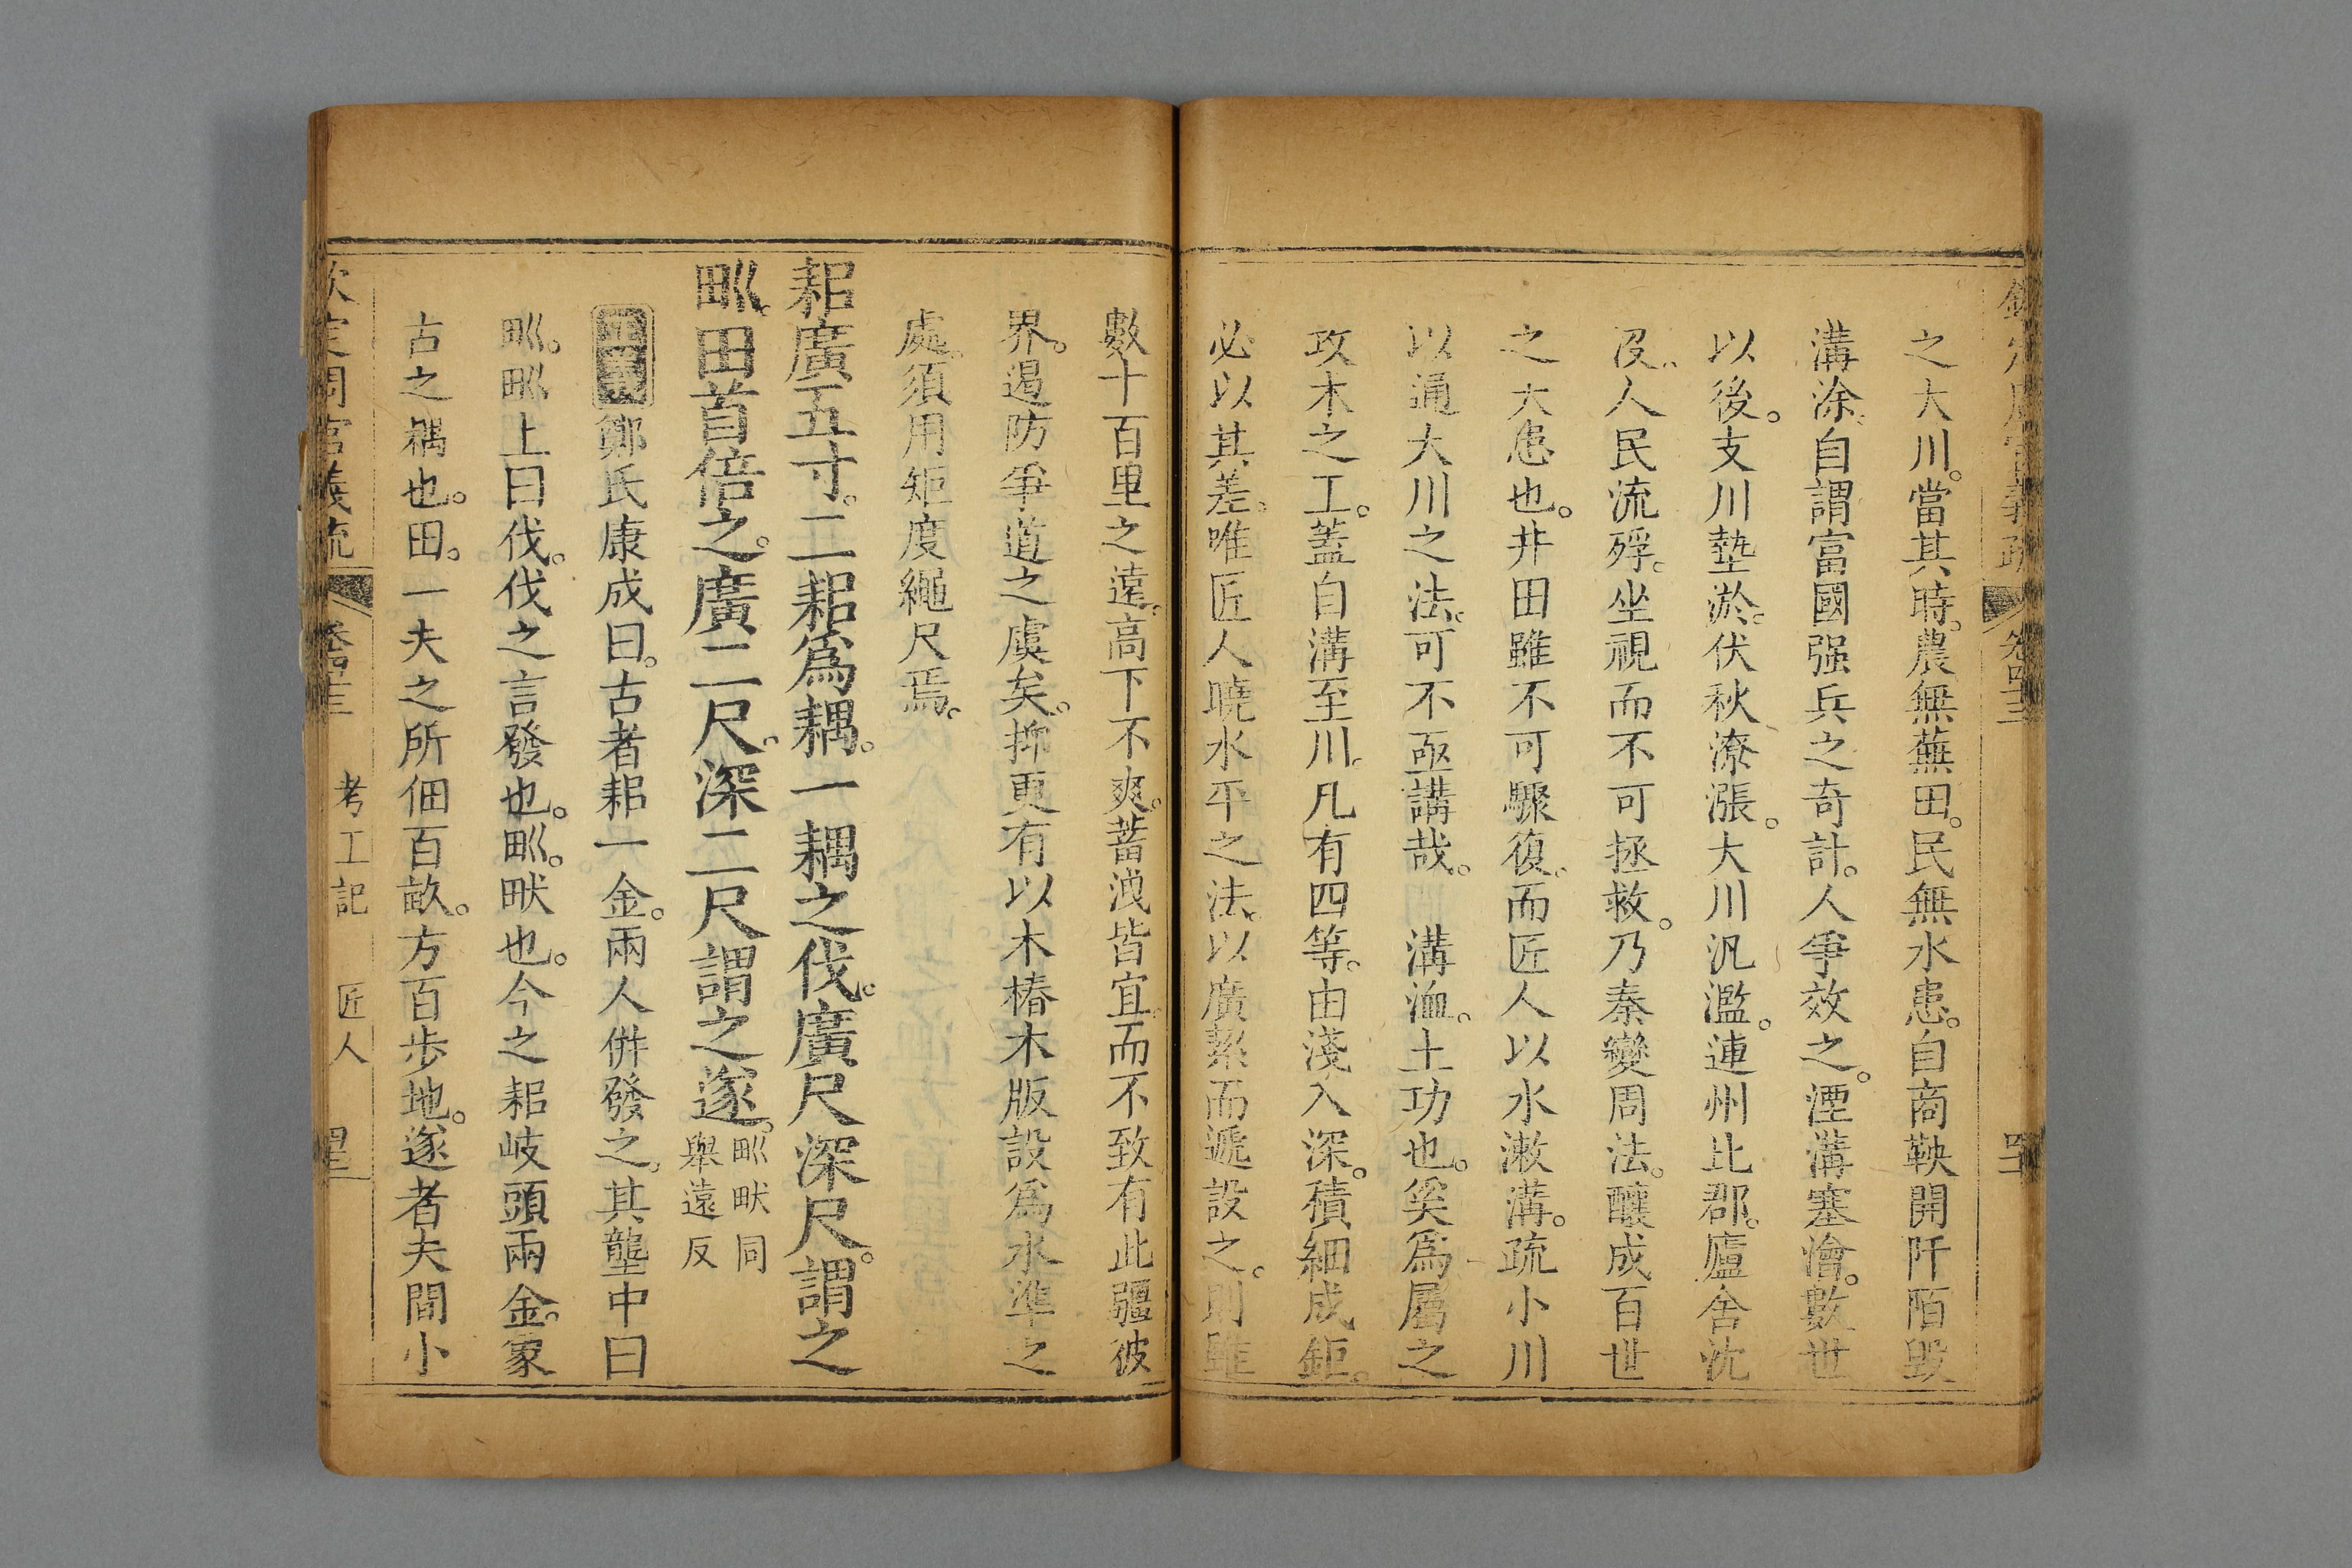 之大川。當其時。農無蕪田。民無水患。自商鞅開阡陌毀
溝涂。自謂富國强兵之奇計。人爭效之。湮溝塞澮。數世
以後。支川墊淤。伏秋潦漲。大川汎濫。連州比郡。廬舍沈
沒。人民流殍。坐視而不可拯救。乃秦變周法。釀成百世
之大患也。井田雖不可驟復。而匠人以水漱溝。疏小川
以通大川之法。可不亟講哉。 溝洫。土功也。奚爲屬之
攻木之工。蓋自溝至川。凡有四等。由淺入深。積細成鉅。
必以其差。唯匠人曉水平之法。以廣絜而遞設之。則雖
數十百里之遠。高下不爽。蓄洩皆宜。而不致有此疆彼
界。遏防爭道之虞矣。抑更有以木樁木版設爲水準之
處。須用矩度繩尺焉。
耜廣五寸。二耜爲耦。一耦之伐。廣尺深尺。謂之
𤰕。田首倍之。廣二尺。深二尺謂之遂。𤰕畎同
舉遠反
正義鄭氏康成曰。古者耜一金。兩人併發之。其壟中曰
𤰕。𤰕上曰伐。伐之言發也。𤰕。畎也。今之耜岐頭兩金。象
古之耦也。田。一夫之所佃百畝。方百步地。遂者夫間小
欽定周官義疏
考工記 匠人